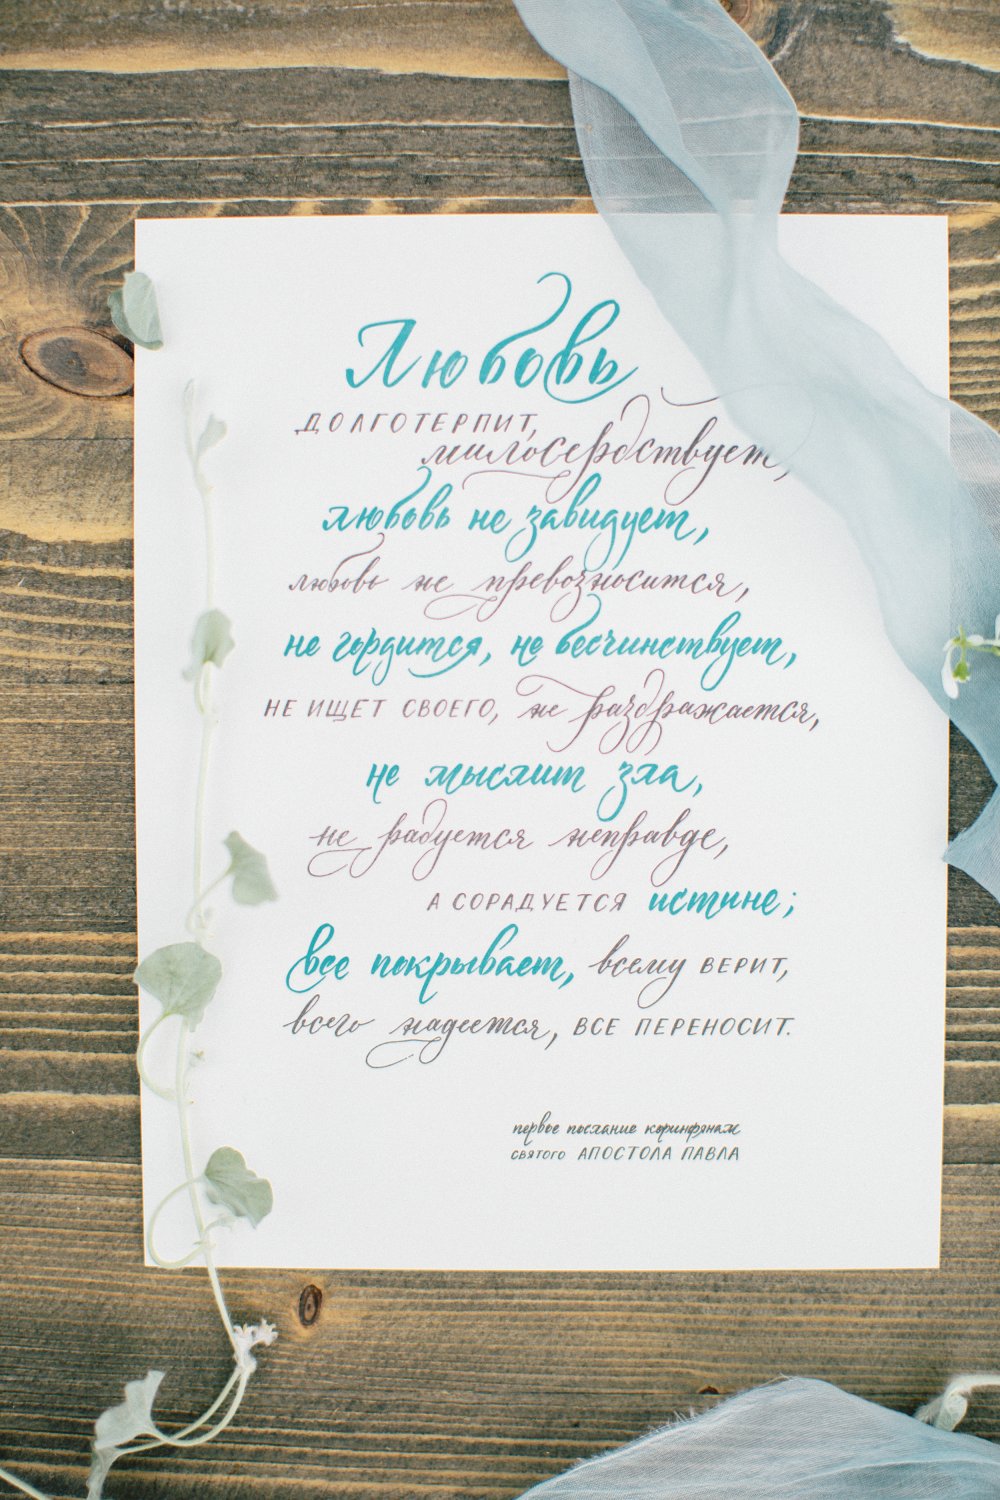 Любовь
ДОЛГОТЕРПИТ,
милосердствует,
любовь не завидует,
любовь не превозносится,
не гордится, не бесчинствует,
НЕ ИЩЕТ СВОЕГО, не раздражается,
не мыслит зла,
не радуется неправде,
А СОРАДУЕТСЯ истине;
все покрывает, всему ВЕРИТ,
всего надеется, ВСЕ ПЕРЕНОСИТ.
первое послание коринфянам
святого АПОСТОЛА ПАВЛА